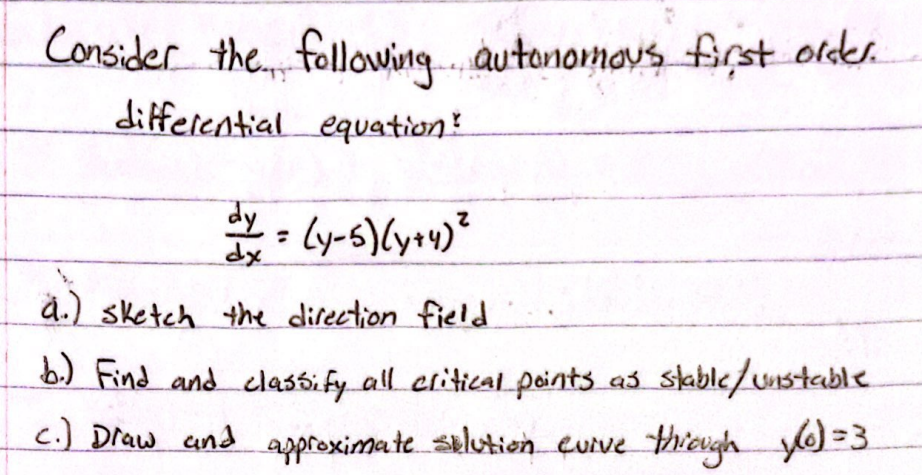 Consider the following autonomous first order
differential equation:
dy/dx = (y-5)(y+4)²
a.) sketch the direction field
b.) Find and classify all critical points as stable/unstable
c.) Draw and approximate solution curve through y(0)=3